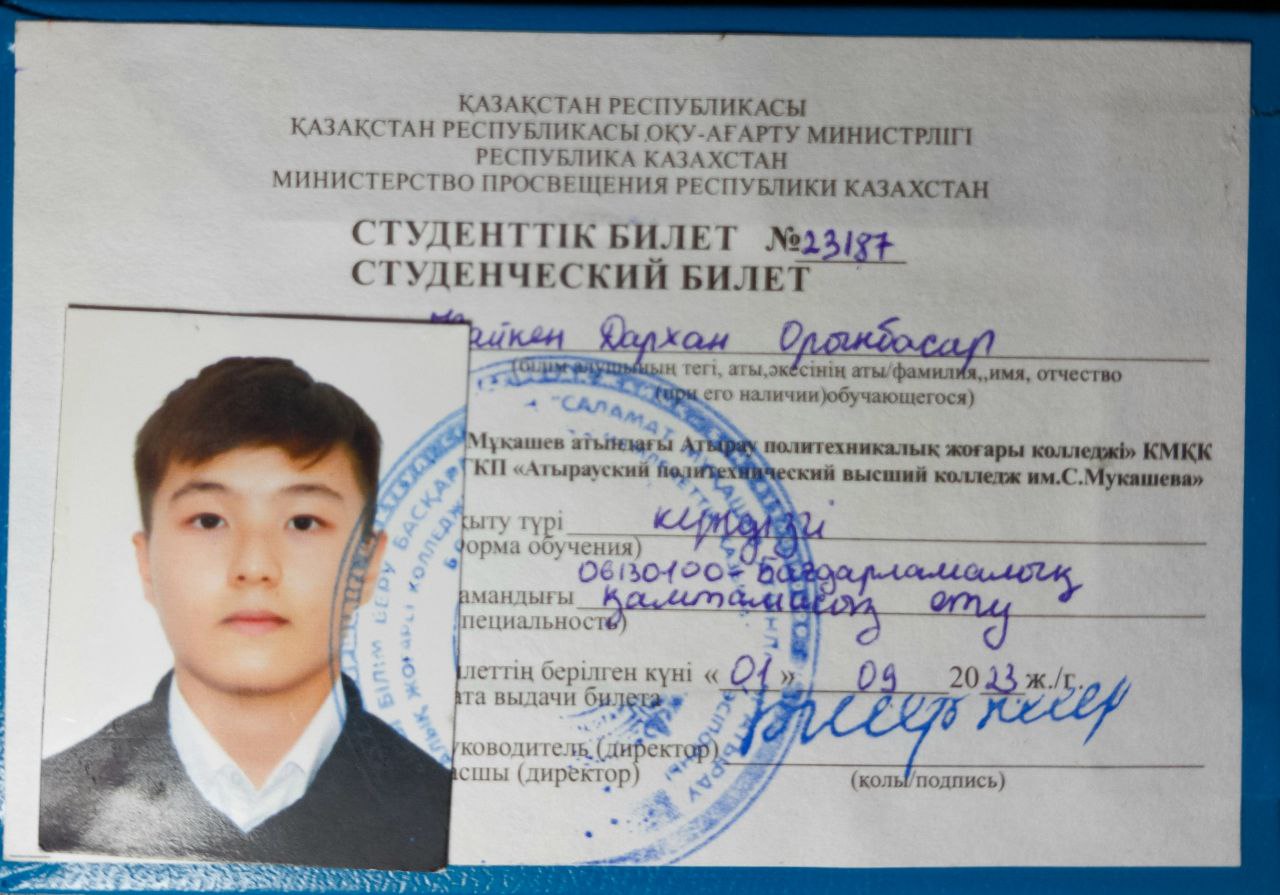 ҚАЗАҚСТАН РЕСПУБЛИКАСЫ
ҚАЗАҚСТАН РЕСПУБЛИКАСЫ ОҚУ-АҒАРТУ МИНИСТРЛІГІ
РЕСПУБЛИКА КАЗАХСТАН
МИНИСТЕРСТВО ПРОСВЕЩЕНИЯ РЕСПУБЛИКИ КАЗАХСТАН
СТУДЕНТТІК БИЛЕТ №23187
СТУДЕНЧЕСКИЙ БИЛЕТ
Дархан Орынбасар
(білім алушының тегі, аты,әкесінің аты/фамилия,,имя, отчество
(при его наличии)обучающегося)
Мұкашев атындағы Атырау политехникалық жоғары колледжі» КМҚК
ГКП «Атырауский политехнический высший колледж им.С.Мукашева»
қыту түрі күндізгі
форма обучения)
06130100- Бағдарламалық
амандығы қамтамасыз ету
пециальность)
илеттің берілген күні «01» 09 2023 ж./г.
ата выдачи билета
уководитель (директор)
асшы (директор)
(қолы/подпись)